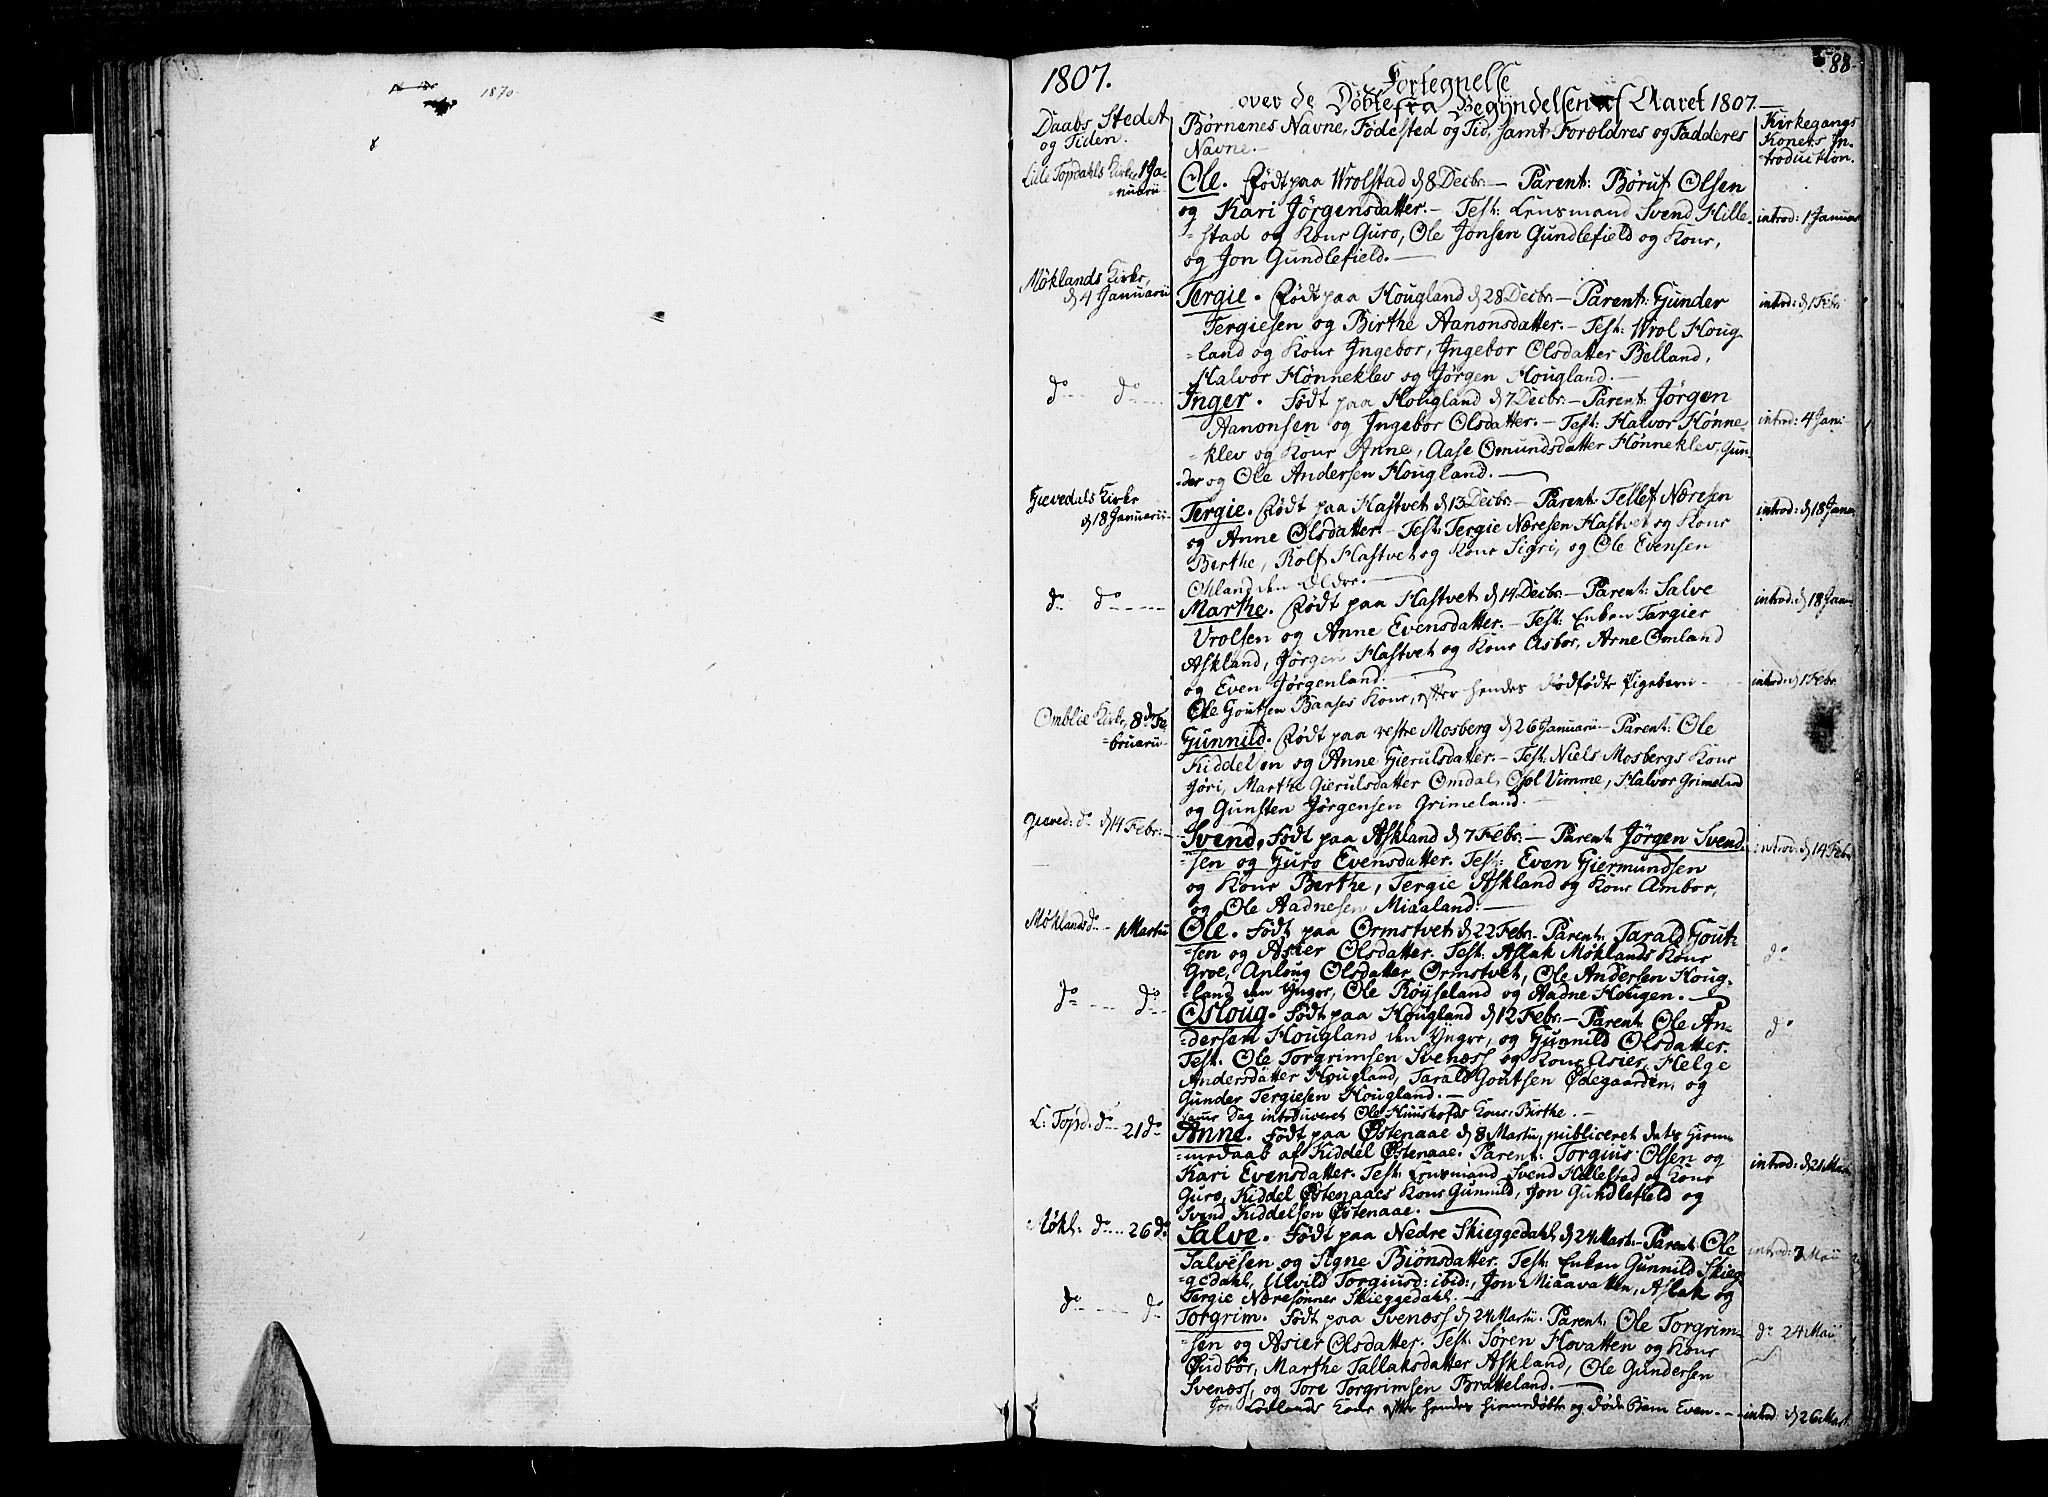 1870
88
1807.
Fortegnelse
over de Døbte fra Begyndelsen af Aaret 1807.
Daabs Stedet
og Tiden.
Børnenes Navne, Fødested og Tid, samt Foroldres og Fadderes
Navne.
Kirkegangs
Konets In-
troduction.
Lille Topdahls Kirke 1 Ja-
nuarii
Ole. Født paa Wrolstad d 8 Decbr. Parent: Børuf Olsen
og Kari Jörgensdatter. Test: Lensmand Svend Hille-
stad og Kone Guro, Ole Jonsen Gundlefield og Kone,
og Jon Gundlefield.
introd: 1 Januar
Møklands Kirke,
d 4 Januarii
Tergie. Født paa Hougland d 28 Decbr. Parent: Gunder
Tergiesen og Birthe Aanonsdatter. Test: Wrol Houg
land og Kone Ingebor, Ingebor Olsdatter Belland,
Halvor Hønneklev og Jørgen Hougland.
introd: d 1 Febr
do do
Inger. Født paa Hougland d 7 Decbr. Parent: Jørgen
Aanonsen og Ingebor Olsdatter. Test: Halvor Hønne-
klev og Kone Anne, Aase Omundsdatter Hønneklev, Gun-
der og Ole Andersen Hougland.
introd: 4 Jan:
Gievedals Kirke
d 18 Januarii
Tergie. Født paa Hastvet d 13 Decbr. Parent: Tellef Næresen
og Anne Olsdatter. Test: Tergie Næresen Hastvet og Kone
Berthe, Rolf Hastvet og Kone Sigri, og Ole Evensen
Ohland den Eldre.
introd: d 18 Janu
do do
Marthe. Født paa Hastvet d 14 Decbr. Parent: Salve
Vrolsen og Anne Evensdatter. Test: Enken Targier
Askland, Jørgen Hastvet og Kone Asbor, Arne Omland
og Even Jørgenland.
introd: d 18 Janu
Ole Goutsen Baases Kone, efter hendes dødfødte Pigebarn
introd: d 1 Febr
Omblie Kirke, 8de Fe
bruarii
Gunnild. Født paa vestre Mosberg d 26 Januarii Parent: Ole
Kiddelsen og Anne Gierulsdatter. Test: Niels Mosbergs Kone
Jøri, Marthe Gierulsdatter Omdal, Vimme, Halvor Grimeland
og Gunsten Jørgensen Grimeland.
Gieved: do d 14 Febr:
Svend, Født paa Askland d 7 Febr. Parent Jørgen Svend-
sen og Guro Evensdatter. Test: Even Giermundsen
og Kone Berthe, Tergie Askland og Kone Ambor,
og Ole Aadnesen Miaaland.
introd: d 14 Febr
Møklands do 1 Martii
Ole. Født paa Ormstvet d 22 Febr. Parent, Tarald Gout-
sen og Asier Olsdatter. Test: Aslak Møklands Kone
Groe, Aploug Olsdatter, Ormstvet, Ole Andersen Houg-
land den Yngre, Ole Röyseland og Aadne Hougen.
do
do do
Osloug. Født paa Hougland d 12 Febr. Parent Ole An-
dersen Hougland den Yngre, og Gunnild Olsdatter.
Test. Ole Torgrimsen Svenæss og Kone Asier, Helge
Andersdatter Hougland, Tarald Goutsen Ødegaarden, og
Gunder Tergiesen Hougland.
do
Dag introduceret Ole Huushofds Kone Birthe.
L: Topd. do 21 do
Anne. Født paa Østenaae d 8 Martii, publiceret dets Hiem-
medaab af Kiddel Østenaae. Parent: Torgius Olsen og
Kari Evensdatter. Test: Lensmand Svend Hillestad og Kone
Guro, Kiddel Østenaaes Kone Gunnild, Jon Gundlefield og
Svend Kiddelsen Østenaae.
introd: d 21 Mar
Møkl: do 26 do
Salve. Født paa Nedre Skieggedahl d 24 Mart. Parent: Ole
Salvesen og Signe Biönsdatter. Test: Enken Gunnild Skieg
gedahl, Torgiusd: ibid:, Jon Miaavatten, Aslak og
Tergie Næresønner Skieggedahl.
introd: 7 Maii
do do
Torgrim. Født paa Svenæss d 24 Martii. Parent: Ole Torgrim-
sen og Asier Olsdatter. Test: Søren Hovatten og Kone
Gudbör, Marthe Tallaksdatter Askland, Ole Gundersen
Svenæss, og Tore Torgrimsen Bratteland.
do 24 Maii
Jon Lødlands Kone efter hendes hiemedøbte og døde Barn Even
introd: d 26 Mart